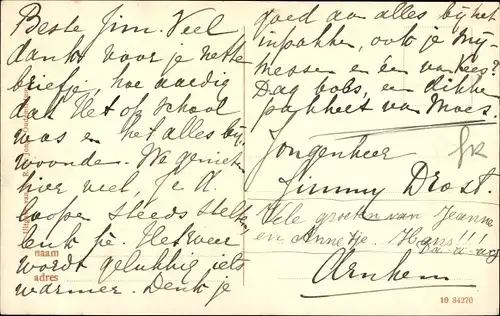 Beste Jim. Veel
dank voor je nette
briefje, hoe aardig
dat Net op school
was en het alles bij-
woonde. We genieten
hier veel, je A.
loopen steeds
je. Het weer
wordt gelukkig iets
warmer. Denk je
goed aan alles bij het
inpakken, ook je
messen en
Dag bobs, en dikke
pakkerd van Moes.
Jongenheer
Jimmy Drost.
Vele groeten van Jeanne
en Annetje. Hans!!
Arnhem
naam
adres
10 84270